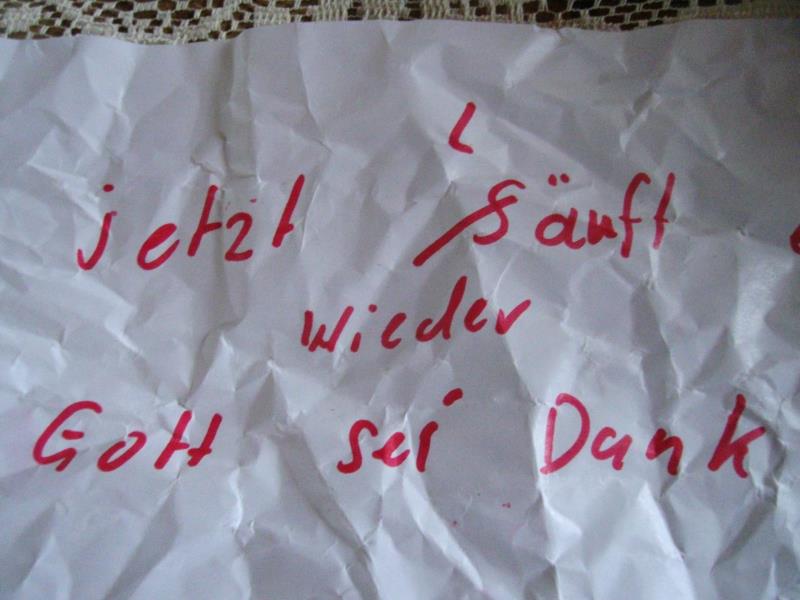 l
jetzt Säuft
wieder
Gott sei Dank